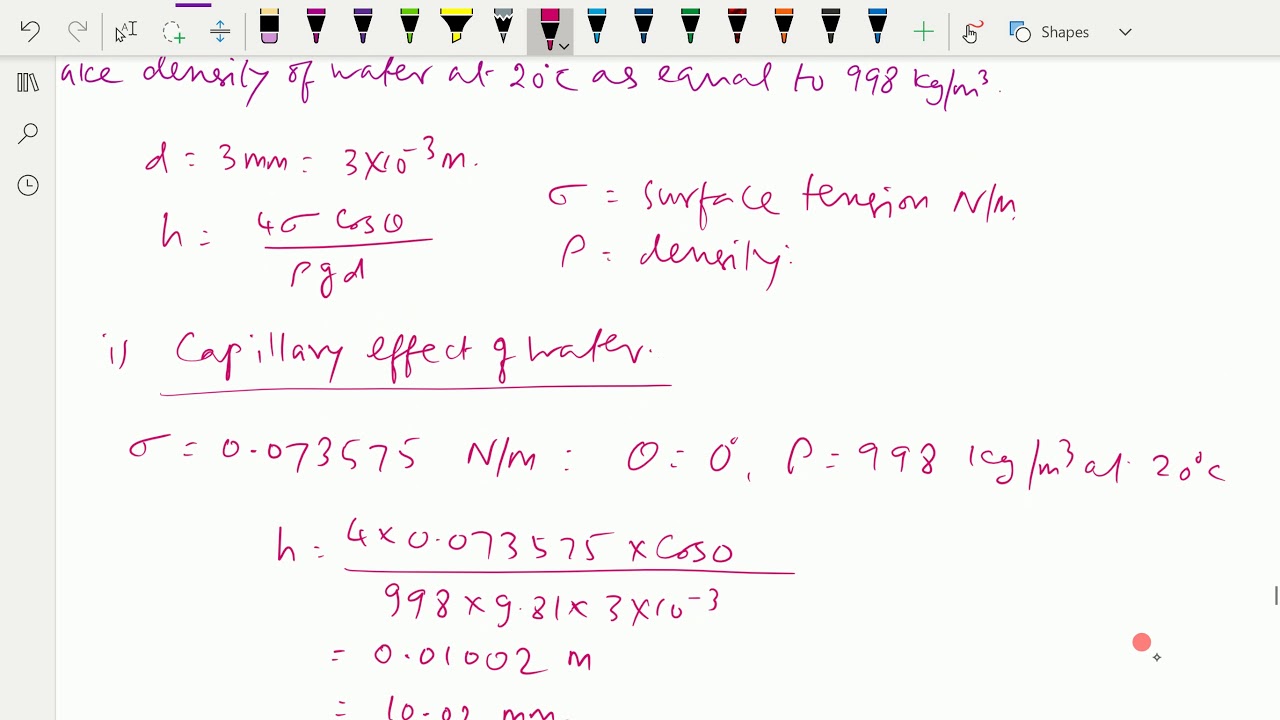 Shapes
ake density of water at 20°C as equal to 998 kg/m³.
d = 3mm = 3×10⁻³ m.
σ = surface tension N/m.
h = 4σ cosθ / ρgd
ρ = density.
i) Capillary effect of water.
σ = 0.073575 N/m : θ = 0°, ρ = 998 kg/m³ at 20°C
h = 4×0.073575×cos0 / 998×9.81×3×10⁻³
= 0.01002 m
= 10.02 mm.